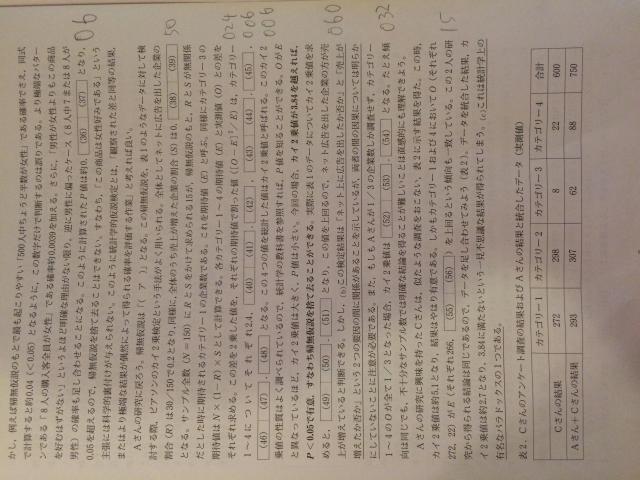 かし、例えば帰無仮説のもとで最も起こりやすい「500人中ちょうど半数が女性」である確率でさえ、同式
で計算すると約0.04（<0.05）となるように、この数字だけで判断するのは誤りである。より極端なパター
ンである「8人の購入者全員が女性」である確率約0.0039を加える。さらに、「男性が女性よりもこの商品
を好むはずがない」というほど明確な理由がない限り、逆に男性に偏ったケース（8人中7または8人が
男性）の確率も足し合わせることになる。このように計算されたP値は約0. (36) (37) となり、
0.05を超えるので、帰無仮説を捨て去ることはできない。すなわち、「この商品は女性好みである」という
主張には科学的裏付けが与えられない。このように統計学的仮説検定とは、「観察された差と同等の結果、
またはより極端な結果が偶然によって得られる確率を評価する作業」と考えれば良い。
Aさんの研究に戻ろう。帰無仮説は「（ ア ）」となる。この帰無仮説を、表1のようなデータに対して検
討する際、ピアソンのカイ2乗検定という手法がよく用いられる。全体としてネットに広告を出した企業の
割合（R）は30/150で0.2となり、同様に、全体のうち売上が増えた企業の割合（S）は0. (38) (39)
となる。サンプル全数（N＝150）にRとSをかけて求められる15が、帰無仮説のもと、RとSが無関係
だとした時に期待されるカテゴリー1の企業数である。これを期待値（E）と呼ぶ。同様にカテゴリー3の
期待値はN×(1－R)×Sとして計算できる。各カテゴリー1～4の期待値（E）と実測値（O）との差を
それぞれ求める。この差を2乗した値を、それぞれの期待値で割った値（[O－E]²/E）は、カテゴリー
1～4についてそれぞれ2.4、 (40) . (41) 、 (42) . (43) (44) 、 (45) .
(46) (47) (48) となる。この4つの値を総計した値はカイ2乗値と呼ばれる。このカイ2
乗値の性質はよく調べられているので、統計学の教科書を参照すれば、P値を知ることができる。OがE
と異なっているほど、カイ2乗値は大きく、P値は小さい。今回の場合、カイ2乗値が3.84を越えれば、
P＜0.05で有意、すなわち帰無仮説を捨て去ることができる。実際に表1のデータについてカイ2乗値を求
めると、 (49) (50) . (51) となり、この値を上回るので、ネット広告を出した企業の方が売
上が増えていると判断できる。しかし、(b)この検定結果は「ネット上に広告を出したか否か」と「売上が
増えたか否か」という2つの要因の間に関係があることを示しているが、両者の間の因果については明らか
にしていないことに注意が必要である。また、もしもAさんが1/3の企業数しか調査せず、カテゴリー
1～4のOが全て1/3となった場合、カイ2乗値は (52) (53) . (54) となる。たとえ傾
向は同じでも、不十分なサンプル数では明確な結論を得ることが難しいことは直感的にも理解できよう。
Aさんの研究に興味を持ったCさんは、似たような調査をおこない、表2に示す結果を得た。この時、
カイ2乗値は約5.1となり、結果はやはり有意である。しかもカテゴリー1および4においてO（それぞれ
272、22）がE（それぞれ266、 (55) (56) ）を上回るという傾向も一致している。この2人の研
究から得られる結論は同じであるので、データを足し合わせてみよう（表2）。データを統合した結果、カ
イ2乗値は約2.7となり、3.84に満たないという一見不思議な結果が得られてしまう。(c)これは統計学上の
有名なパラドックスの1つである。
表2. CさんのアンケートMり調査の結果およびAさんの結果と統合したデータ（実測値）
カテゴリー1 カテゴリー2 カテゴリー3 カテゴリー4 合計
Cさんの結果 272 298 8 22 600
Aさん+Cさんの結果 293 307 62 88 750
06
50
024
006
006
060
032
15